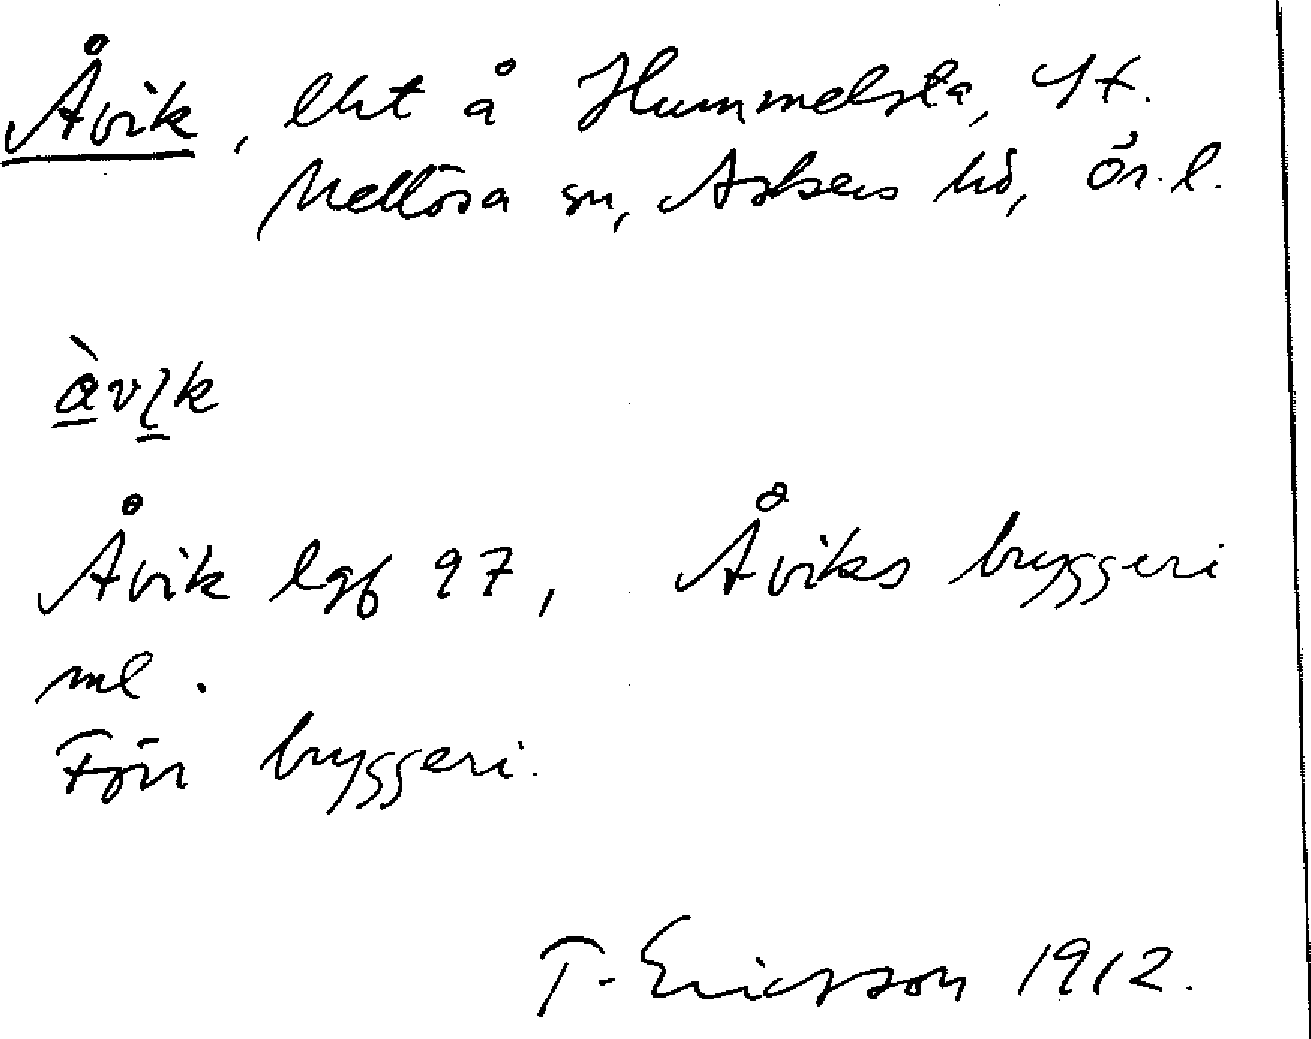 Åvik, lht å Hummelsta, St.
Mellösa sn, Askers hd, Ör. l.
àvik
Åvik lgf 97, Åviks bryggeri
ml.
Förr bryggeri.
T. Ericsson 1912.